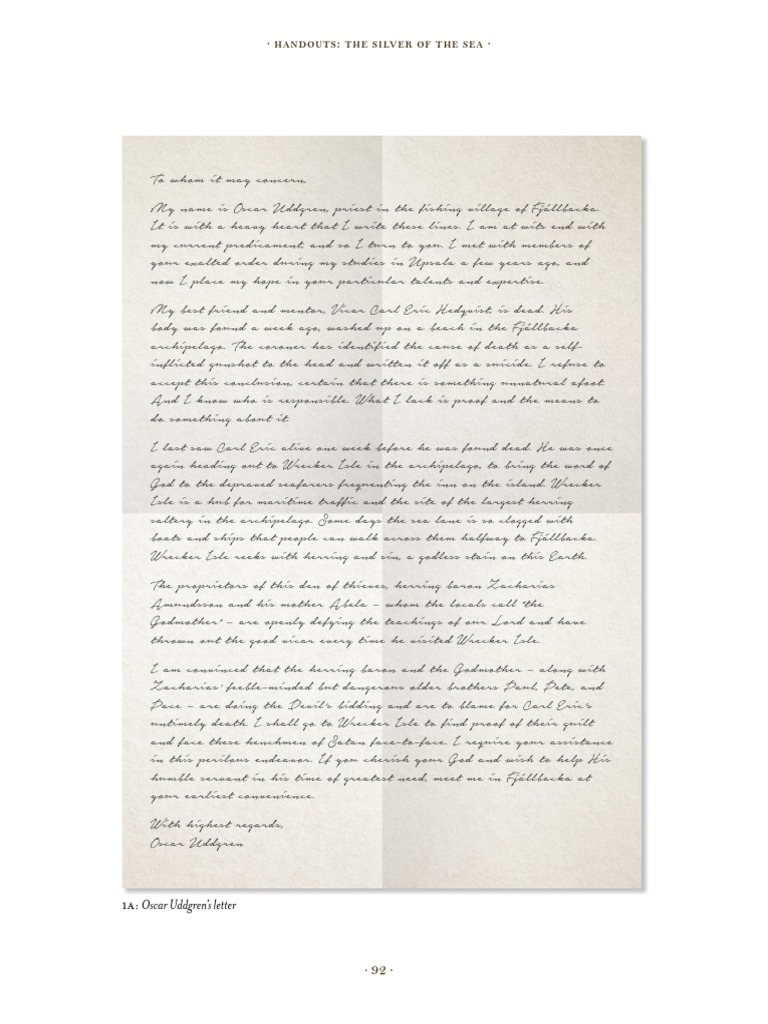 · HANDOUTS: THE SILVER OF THE SEA ·
To whom it may concern,
My name is Oscar Uddgren, priest in the fishing village of Fjällbacka.
It is with a heavy heart that I write these lines. I am at wits end with
my current predicament, and so I turn to you. I met with members of
your exalted order during my studies in Upsala a few years ago, and
now I place my hope in your particular talents and expertise.
My best friend and mentor, Vicar Carl Eric Hedqvist, is dead. His
body was found a week ago, washed up on a beach in the Fjällbacka
archipelago. The coroner has identified the cause of death as a self-
inflicted gunshot to the head and written it off as a suicide. I refuse to
accept this conclusion, certain that there is something unnatural afoot.
And I know who is responsible. What I lack is proof and the means to
do something about it.
I last saw Carl Eric alive one week before he was found dead. He was once
again heading out to Wrecker Isle in the archipelago, to bring the word of
God to the depraved seafarers frequenting the inn on the island. Wrecker
Isle is a hub for maritime traffic and the site of the largest herring
saltery in the archipelago. Some days the sea lane is so clogged with
boats and ships that people can walk across them halfway to Fjällbacka.
Wrecker Isle reeks with herring and sin, a godless stain on this Earth.
The proprietors of this den of thieves, herring baron Zacharias
Amundsson and his mother Abela – whom the locals call "the
Godmother" – are openly defying the teachings of our Lord and have
thrown out the good vicar every time he visited Wrecker Isle.
I am convinced that the herring baron and the Godmother – along with
Zacharias' feeble-minded but dangerous older brothers Paul, Pete, and
Pace – are doing the Devil's bidding and are to blame for Carl Eric's
untimely death. I shall go to Wrecker Isle to find proof of their guilt
and face these henchmen of Satan face-to-face. I require your assistance
in this perilous endeavor. If you cherish your God and wish to help His
humble servant in his time of greatest need, meet me in Fjällbacka at
your earliest convenience.
With highest regards,
Oscar Uddgren
1A: Oscar Uddgren's letter
· 92 ·